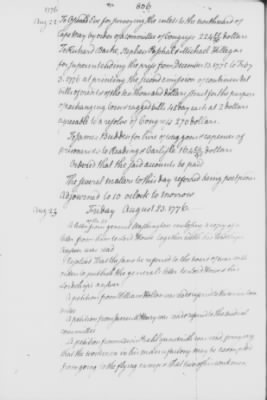 1776
836
Aug 22
To for procuring the salts to the southward of
Cape May by order of a committee of Congress 224 dollars
To Richard Bache, Stephen Paschal & Michael Hillegas
for superintending the press from December 13. 1775 to Feby
3. 1776 at printing the second emission of continental
bills of credit & the ten thousand struck for the purpose
of exchanging torn & ragged bills 48 day each at 2 dollars
agreeable to a resolve of Congress 270 dollars.
To James Budden for hire of waggons & expences of
prisoners to Reading & Carlisle 164 dollars
Ordered that the said accounts be paid
The several matters to this day referred being postponed
Adjourned to 10 o'clock to morrow
Aug 23
Friday August 23. 1776
A letter from general Washington enclosing a copy of a
letter from him to Lord Howe together with his lordship's
answer was read
Resolved that the same be referred to the board of war with
orders to publish the general's letter to Lord Howe & his
lordship's answer
A petition from William Holton was read & referred to the
A petition from Jeremiah Henry was read & referred to the medical
committee
A petition from was read, praying
that the workmen in his may be exempted
from going to the flying camp & that two of his workmen